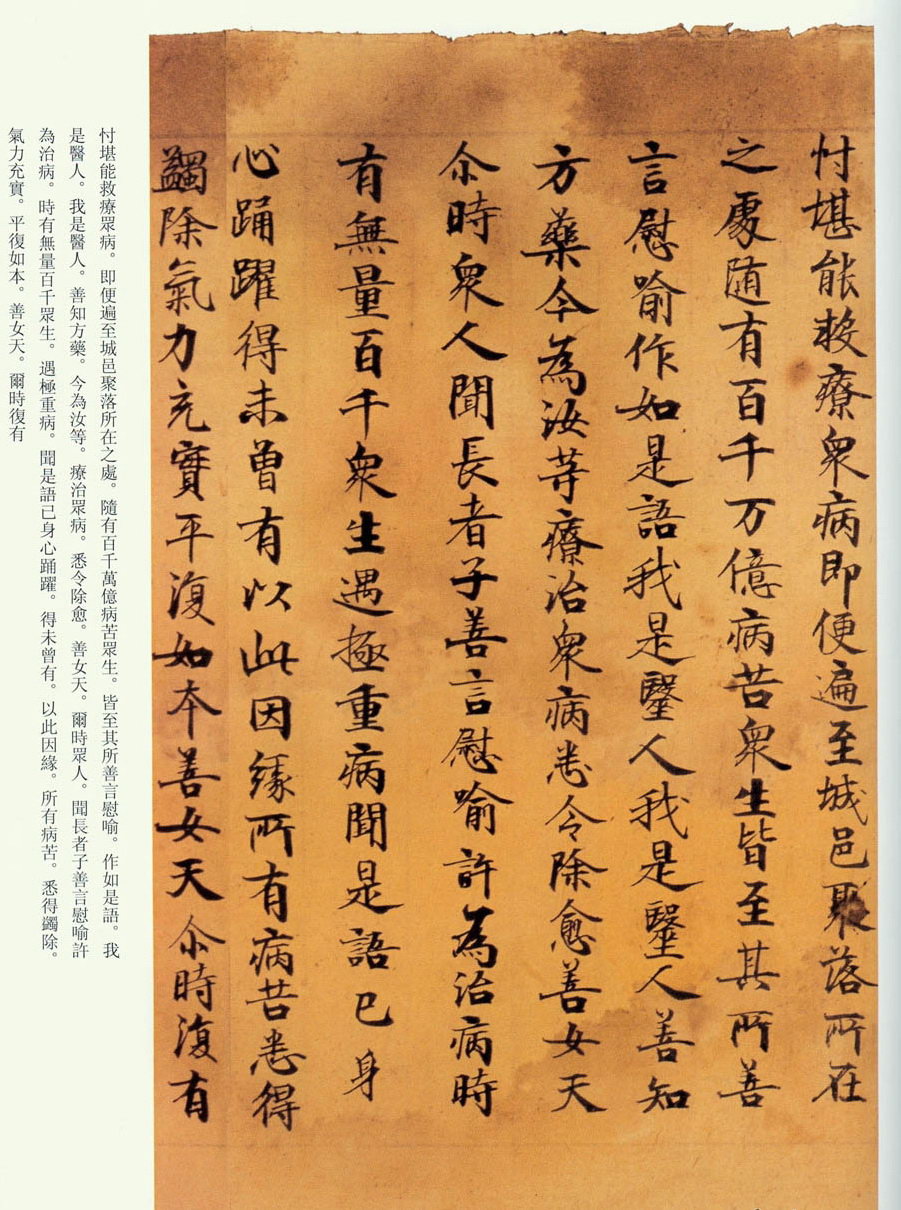 忖堪能救療衆病即便遍至城邑聚落所在
之處随有百千万億病苦衆生皆至其所善
言慰喻作如是語我是毉人我是毉人善知
方藥今為汝等療治衆病悉令除愈善女天
尒時衆人聞長者子善言慰喻許為治病時
有無量百千衆生遇極重病聞是語已身
心踊躍得未曾有以此因緣所有病苦悉得
蠲除氣力充實平復如本善女天尒時復有
忖堪能救療眾病。即便遍至城邑聚落所在之處。隨有百千萬億病苦眾生。皆至其所善言慰喻。作如是語。我
是醫人。我是醫人。善知方藥。今為汝等。療治眾病。悉令除愈。善女天。爾時眾人。聞長者子善言慰喻許
為治病。時有無量百千眾生。遇極重病。聞是語已身心踊躍。得未曾有。以此因緣。所有病苦。悉得蠲除。
氣力充實。平復如本。善女天。爾時復有